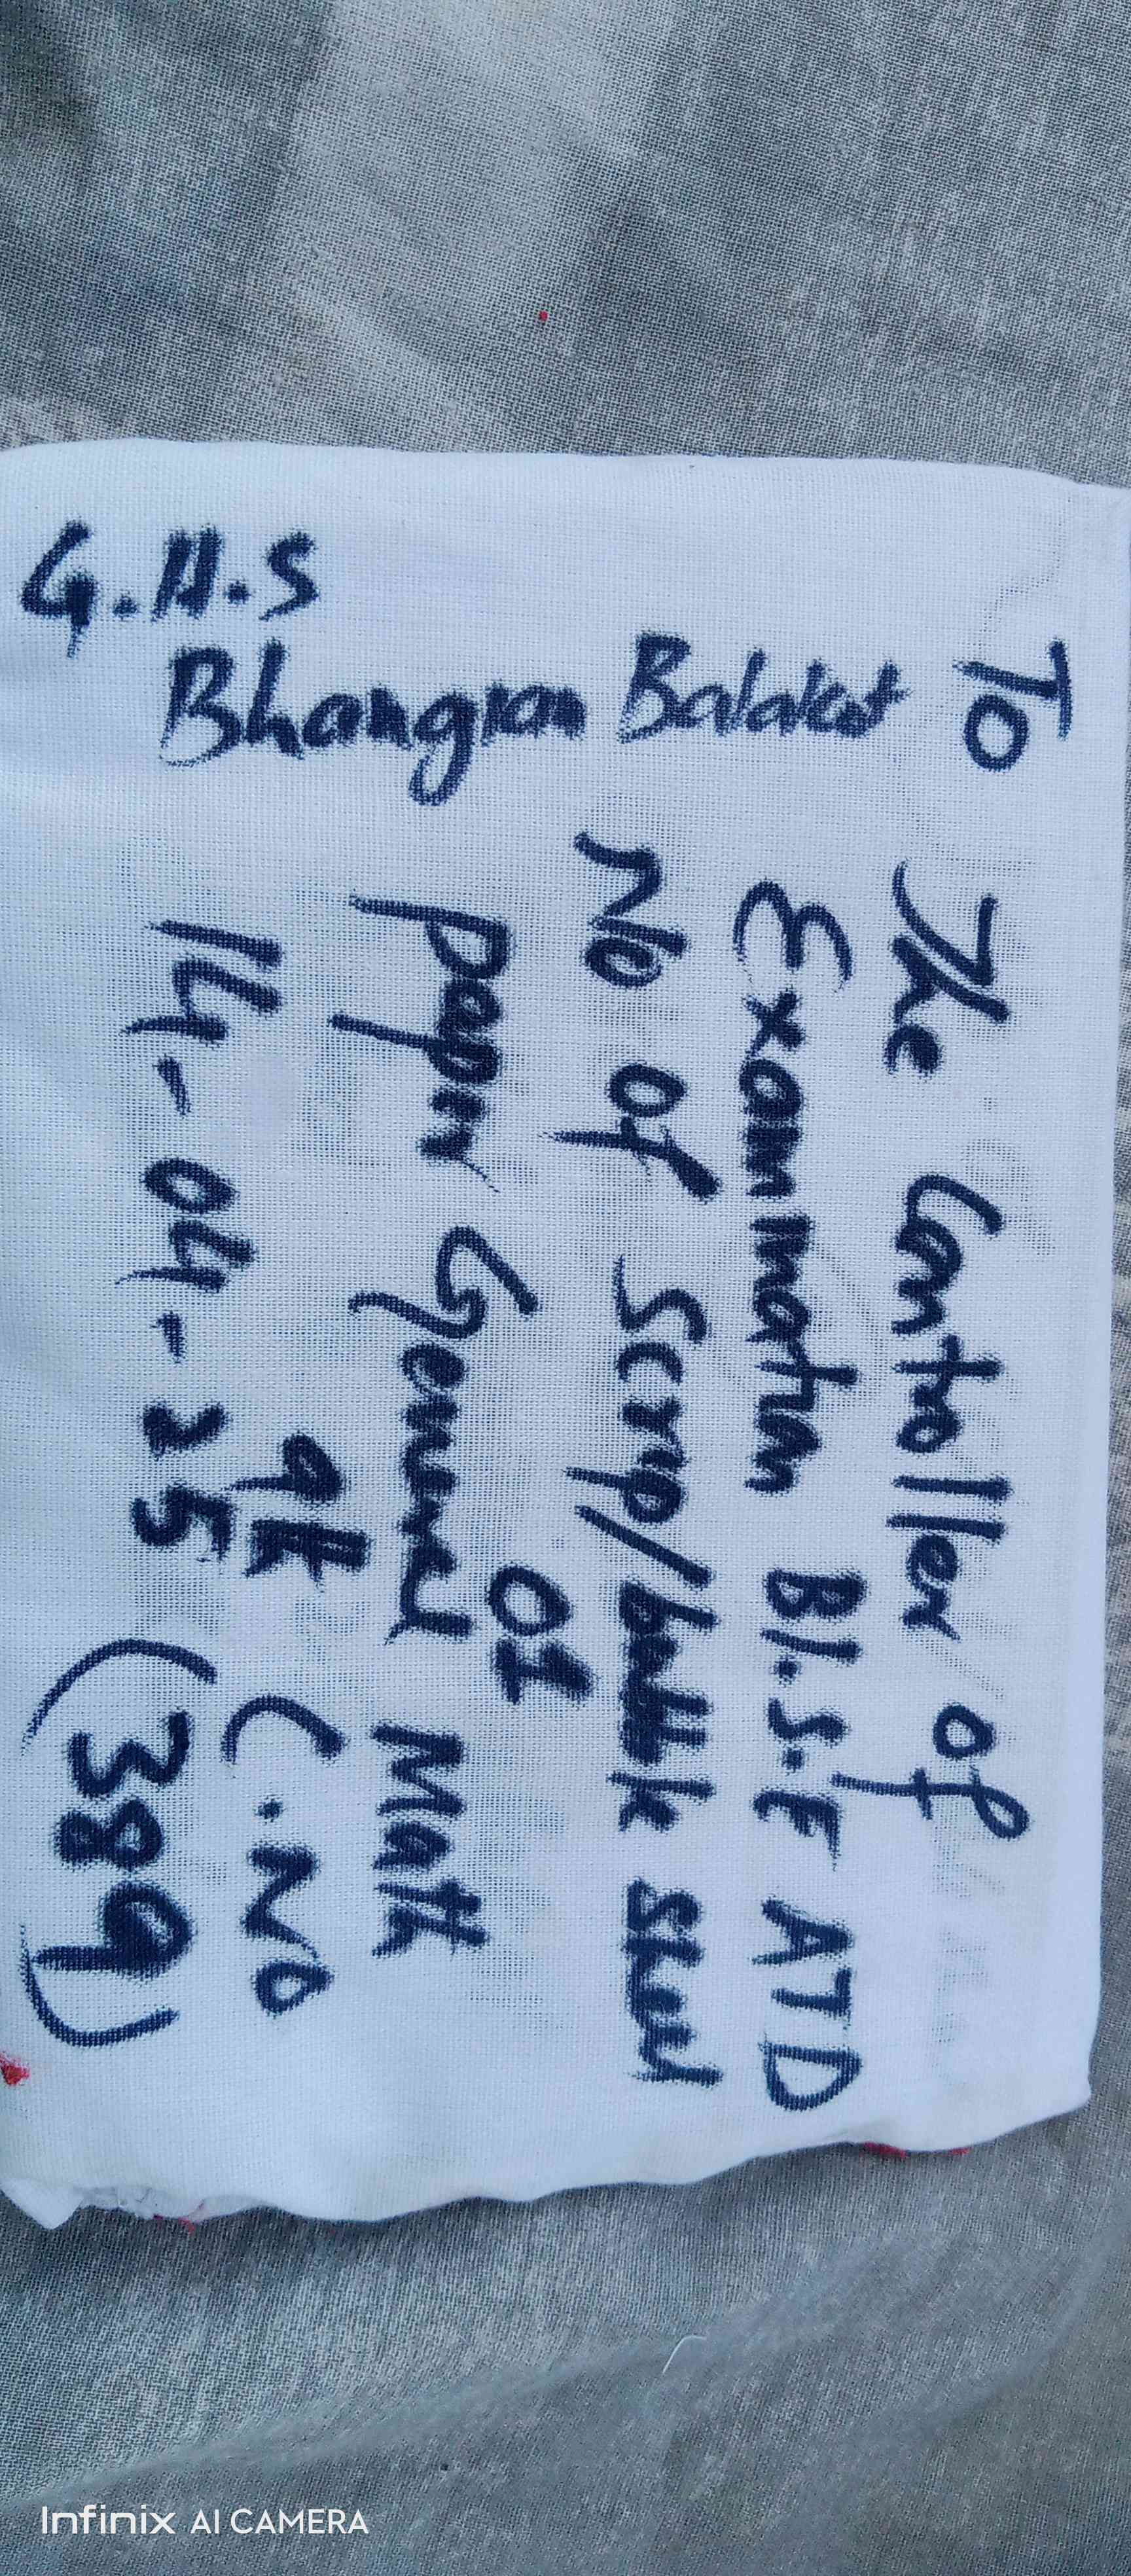 To
The Controller of
Examination B.I.S.E ATD
No of Scrip/
01
Paper General Math
9th C.No
14-04-25 (389)
Balakot
Bhangian
G.H.S
Infinix AI CAMERA